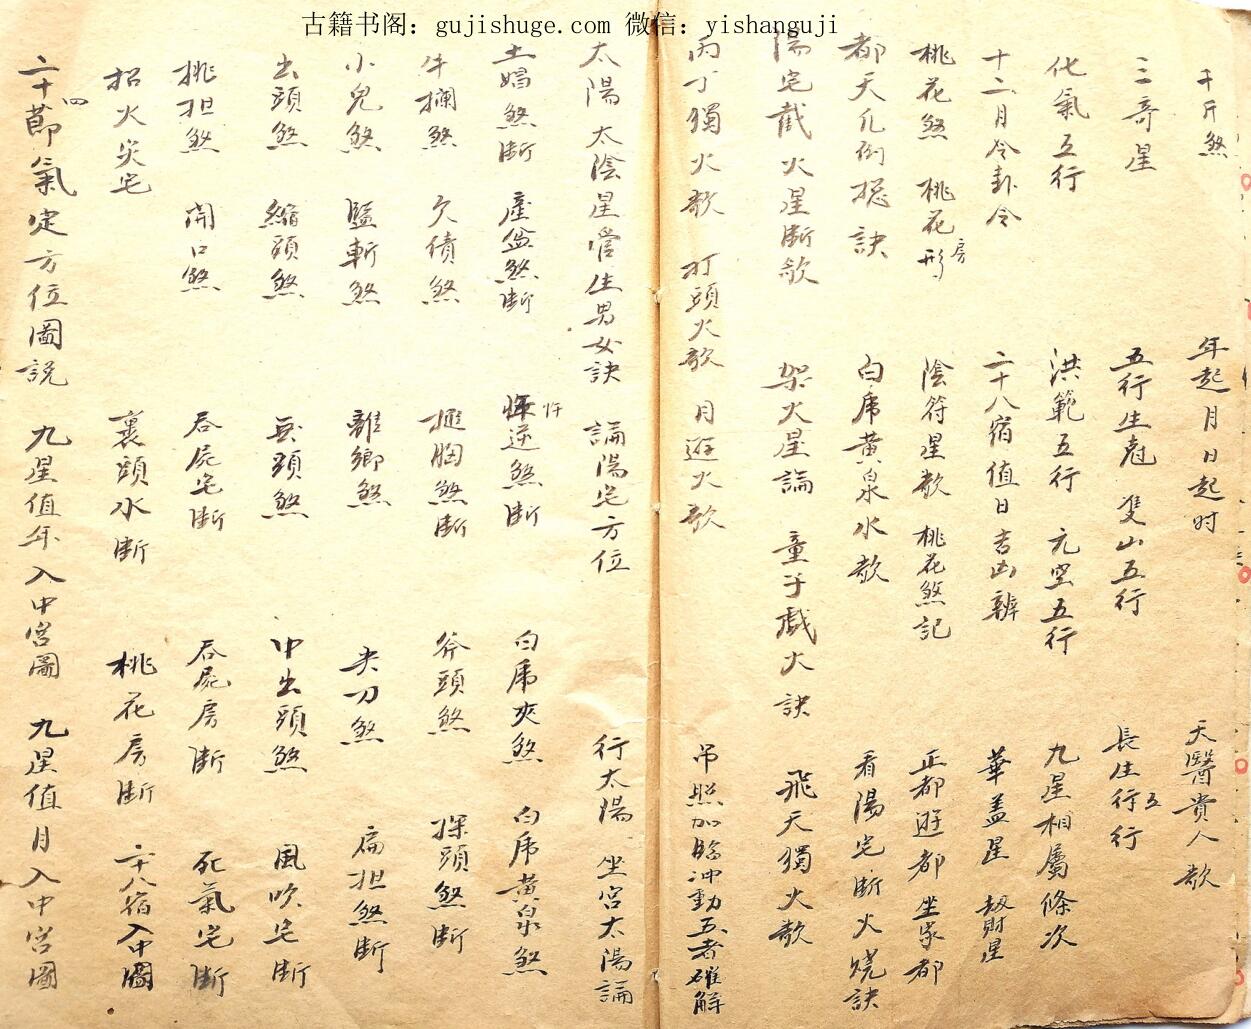 古籍书阁：gujishuge.com 微信：yishanguji
千斤煞 年起月日起时 天醫貴人歌
三奇星 五行生尅 雙山五行 長生五行
化氣五行 洪範五行 元空五行 九星相屬條次
十二月令卦令 二十八宿值日吉凶辨 華蓋星 劫財星
桃花煞 桃花房形 陰符星歌 桃花煞記 正都遊都坐家都
都天凡例捴訣 白虎黃泉水歌 看陽宅斷火燒訣
陽宅截火星断歌 架火星論 童子戲火訣 飛天獨火歌
丙丁獨火歌 打頭火歌 月遊火歌 吊照加臨冲動五者確解
太陽太陰星管生男女訣 論陽宅方位 行太陽 坐宮太陽論
土媚煞断 產盆煞断 忤逆煞断 白虎夾煞 白虎黃泉煞
牛攔煞 欠債煞 搥胸煞断 斧頭煞 探頭煞断
小兒煞 監斬煞 離鄉煞 尖刀煞 扁担煞断
出頭煞 縮頭煞 無頭煞 中出頭煞 風吹宅断
挑担煞 開口煞 吞屍宅断 吞屍房断 死氣宅断
招火災宅 裹頭水断 桃花房断 二十八宿入中圖
二十四節氣定方位圖説 九星值年入中宮圖 九星值月入中宮圖